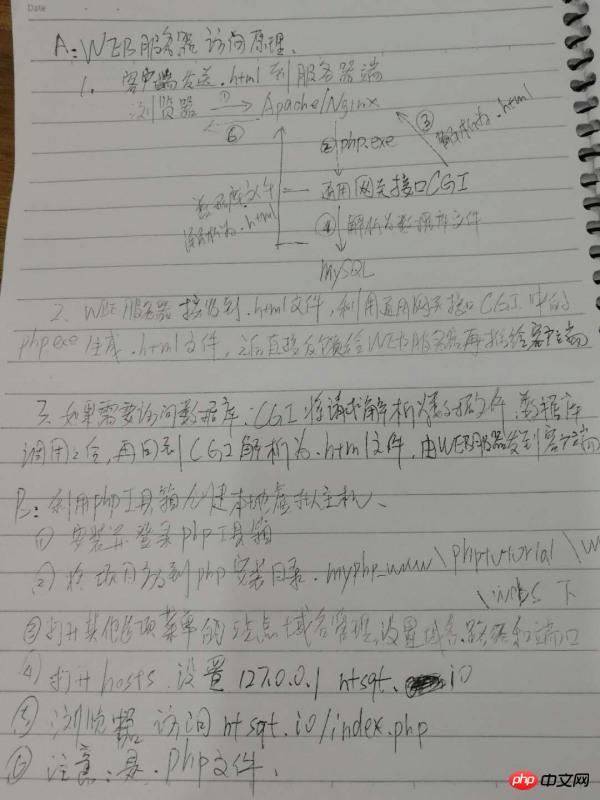 Date
A:WEB服务器访问原理、
1. 客户端发送.html到服务器端
浏览器 ① Apache/Nginx
⑥
② php.exe
③ 解析为.html
数据库文件
解析为.html
通用网关接口CGI
④ 解析为数据库文件
MySQL
2、WEB服务器接收到.html文件,利用通用网关接口CGI中的
php.exe生成.html文件,之后直接反馈给WEB服务器再 给客户端
3.如果需要访问数据库.CGI将请求解析为数据文件.数据库
调用之后,再回到CGI解析为.html文件,由WEB服务器发到客户端
B:利用php工具箱创建本地虚拟主机、
① 安装并登录php工具箱
② 将项目 到php安装目录.myphp_www\phptutorial\W
下
③打开其他选项菜单的站点域名管理,设置域名、路径和端口
④ 打开hosts 设置 127.0.0.1 ntsqt. io
⑤ 浏览器 访问 ntsqt.io/index.php
⑥ 注意:是.php文件、
php 中文网